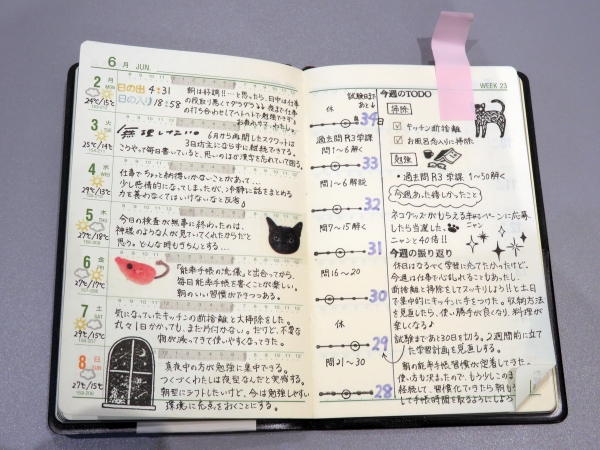 6月 JUN.
2 月
日の出 4:31
日の入り 18:58
朝は好調!!…と思ったら、日中は仕事
の段取り悪くてダラダラ
24℃/15℃
3 火
無理しない。
6月から再開したスクワットは
3日坊主にならずに継続できてる。
こうやって毎日書いていると、思いのほか漢字を忘れていて困る。
25℃/14℃
4 水
仕事でちょっと納得いかないことがあって…
少し感情的になってしまったが、冷静に話をまとめる
力を養わなくてはいけないなと反省
27℃/13℃
5 木
今日の検査が無事に終わったのは、
神様のような人が見ていてくれたからだと
思う。どんな時もきちんとする…
29℃/18℃
6 金
「能率手帳の流儀」と出会ってから、
毎日能率手帳を書くことが楽しい。
朝のいい習慣ができつつある。
27℃/17℃
7 土
気になっていたキッチンの断捨離と大掃除をした。
丸々1日かかっても、まだ片付かない。だけど、不要な
物が減ってきて使いやすくなってきた。
27℃/15℃
8 日
真夜中の方が勉強に集中できる。
つくづくわたしは夜型なんだと実感する。
朝型にシフトしたいけど、今は勉強しやすい
環境に重点をおくことにする。
27℃/15℃
試験日まであと↓
休
34日
過去問R3学課
問1~6解く
33
問1~6解説
32
問7~15解く
31
問16~20
30
休
29
問21~30
28
WEEK 23
今週のTODO
掃除
キッチン断捨離
お風呂念入りに掃除
勉強
過去問R3学課 1~50解く
今週あった嬉しかったこと
ネコグッズがもらえるキャンペーンに応募
したら当選した。
ニャンと40倍!!
ニャン
今週の振り返り
休日はなるべく学習に充てたかったけど、
今週は仕事で心乱れることもあったし、
断捨離と掃除をしてスッキリしよう!!と土日
を集中的にキッチンに手をつけた。収納方法
を見直したら、使い勝手が良くなり、料理が
楽しくなる♪
試験まであと30日を切る。2週間前に立て
た学習計画を見直しする。
朝の能率手帳習慣が定着してきた。
使い方も決またので、もう少しこのま
継続して、習慣化していきたら朝も
して手帳時間を取るようにしよう